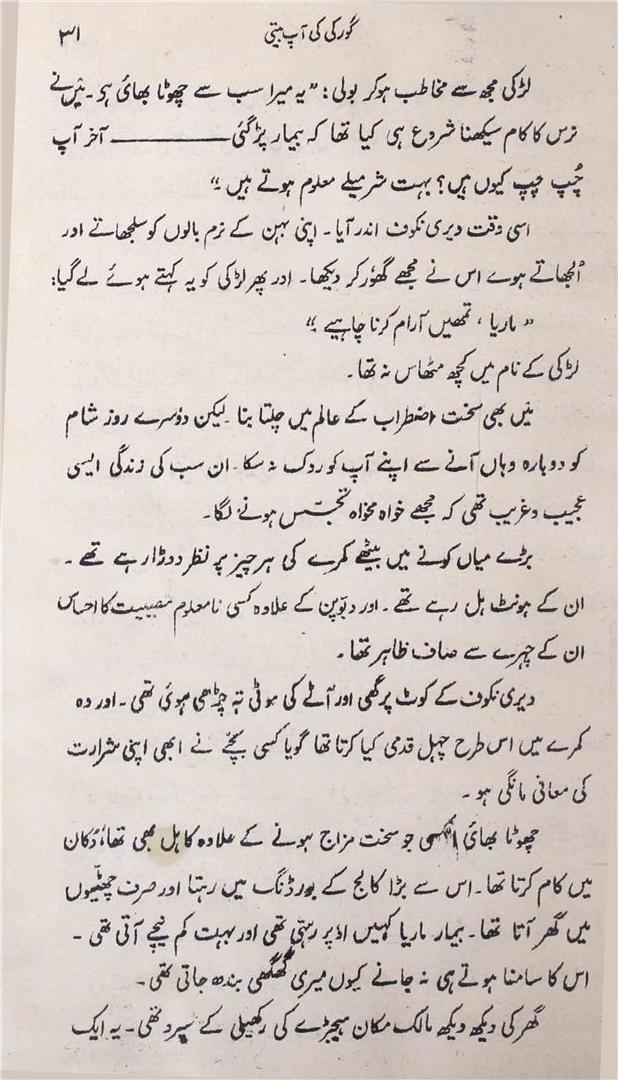 گورکی کی آپ بیتی ۳۱
لڑکی مجھ سے مخاطب ہوکر بولی: "یہ میرا سب سے چھوٹا بھائی ہو۔ میں نے
نرس کا کام سیکھنا شروع ہی کیا تھا کہ بیمار پڑ گئی ــــــــــ آخر آپ
چُپ چپ کیوں ہیں؟ بہت شرمیلے معلوم ہوتے ہیں۔"
اسی وقت دیری نکوف اندر آیا۔ اپنی بہن کے نرم بالوں کو سلجھاتے اور
اُلجھاتے ہوے اس نے مجھے گھور کر دیکھا۔ اور پھر لڑکی کو یہ کہتے ہوئے لے گیا:
"ماریا، تمھیں آرام کرنا چاہیے۔"
لڑکی کے نام میں کچھ مٹھاس نہ تھا۔
میں بھی سخت اضطراب کے عالم میں چلتا بنا۔ لیکن دوسرے روز شام
کو دوبارہ وہاں آنے سے اپنے آپ کو روک نہ سکا۔ ان سب کی زندگی ایسی
عجیب و غریب تھی کہ مجھے خواہ مخواہ تجسّس ہونے لگا۔
بڑے میاں کونے میں بیٹھے کمرے کی ہر چیز پر نظر دوڑا رہے تھے۔
ان کے ہونٹ ہل رہے تھے۔ اور دبّوپن کے علاوہ کسی نامعلوم مصیبت کا احساس
ان کے چہرے سے صاف ظاہر تھا۔
دیری نکوف کے کوٹ پر گھی اور آٹے کی موٹی تہ چڑھی ہوئی تھی۔ اور وہ
کمرے میں اس طرح چہل قدمی کیا کرتا تھا گویا کسی بچّے نے ابھی اپنی شرارت
کی معافی مانگی ہو۔
چھوٹا بھائی جو سخت مزاج ہونے کے علاوہ کاہل بھی تھا، دُکان
میں کام کرتا تھا۔ اس سے بڑا کالج کے بورڈنگ میں رہتا اور صرف چھٹیوں
میں گھر آتا تھا۔ بیمار ماریا کہیں اوپر رہتی تھی اور بہت کم نیچے آتی تھی۔
اس کا سامنا ہوتے ہی نہ جانے کیوں میری گھگھی بندھ جاتی تھی۔
گھر کی دیکھ دیکھ مالک مکان ہیجڑے کی رکھیلی کے سپرد تھی۔ یہ ایک